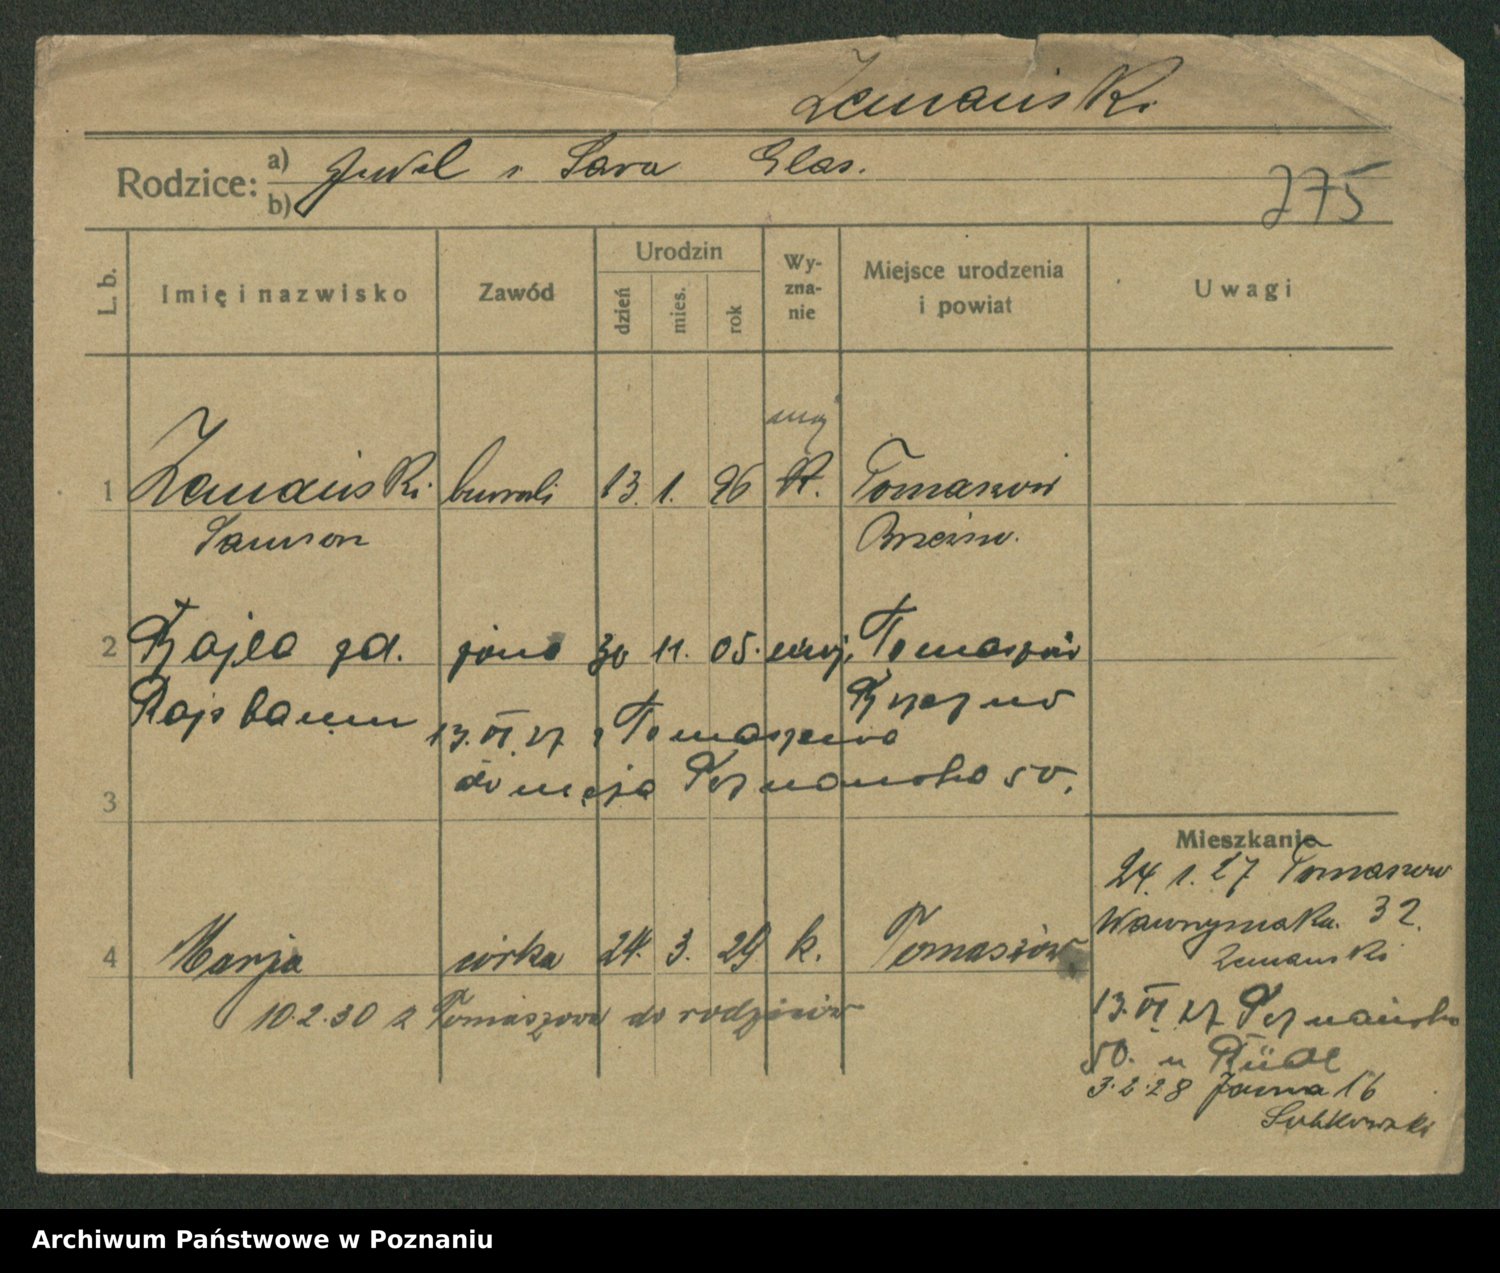 Zemański
Rodzice: a) b) Juda i Sara Glas.
275
L. b.
Imię i nazwisko
Zawód
Urodzin
dzień
mies.
rok
Wy-
zna-
nie
Miejsce urodzenia
i powiat
Uwagi
mojż
1 Zemański 13. 1. 96 Tomaszów
Samson Brzeziny.
2 Fajla zd. żona 30 11. 05. mojż. Tomaszów
Rajsbaum Brzeziny
13.VI.27 z Tomaszowa
do męża Poznańska 50.
3
Mieszkanie
24. 1. 27 Tomaszów
32.
Zemański
4 Marja córka 24. 3. 29 k. Tomaszów
10.2.30 z Tomaszowa do rodziców
13.VI.27 Poznańska
50. u
3.2.28 Jasna 16
Sułkowski
Archiwum Państwowe w Poznaniu